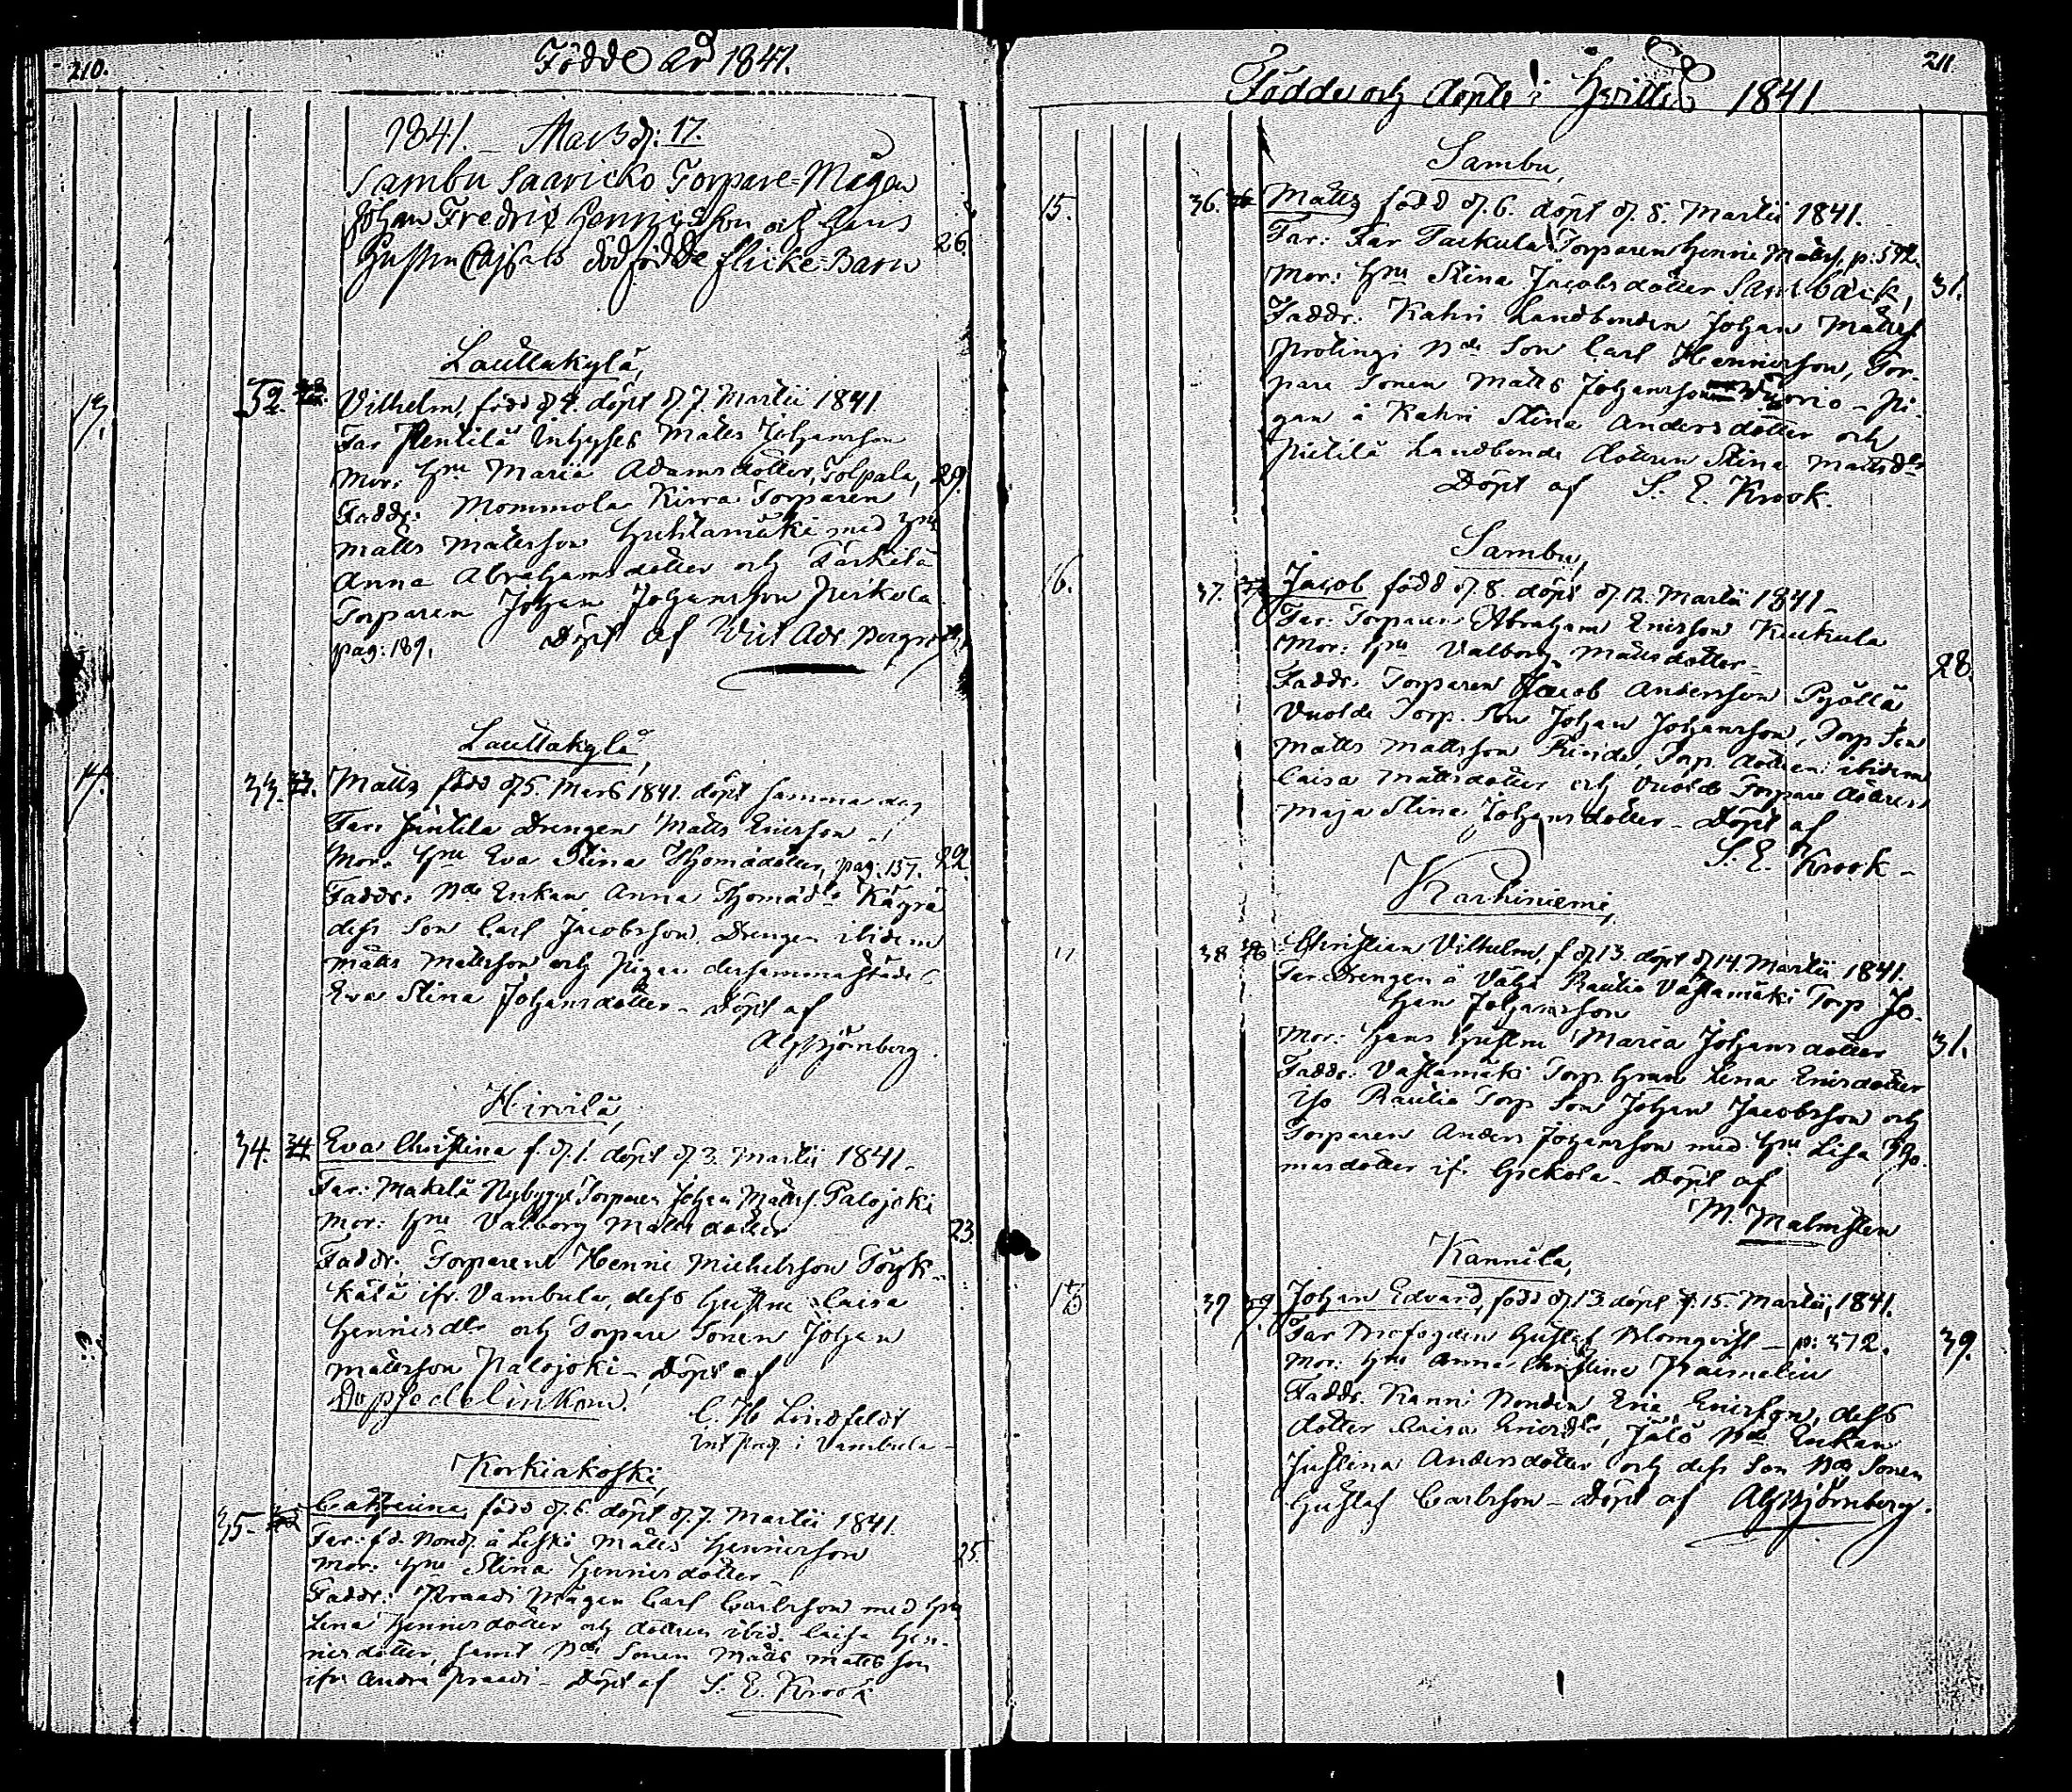 210.
Födde år 1841.
1841. Mars d: 17.
Sambu Saaricko Torpare-Mågen
Johan Fredric Henricsson och hans
Hustru Cajsas dödfödde flicke-Barn
26.
Lauttakylä,
13.
32. Vilhelm, född d 4. döpt d 7. Martii 1841
Far Penttilä Inhyses Matts Johansson
Mor: Hru Maria Adamsdotter, Tolpala, 29.
Faddr: Mommola Kirra Torparen
Matts Mattsson Huhtamäki med Hru
Anna Abrahamsdotter och Tarkila
Torparen Johan Johansson
pag: 189. Döpt af
Lauttakylä,
14.
33. 33. Matts född d 5. Mars 1841. döpt samma dag
Far: Drengen Matts Ericsson
Mor: Hru Eva Stina Thomædotter, pag: 157. 22.
Faddr: Nde Enkan Anna Thomædr
dess Son Carl Jacobsson, Drengen ibidem
Matts Mattsson och Pigan dersammastädes
Eva Stina Johansdotter - Döpt af
Björnberg.
Hirvilä,
34. 34. Eva Christina f. d. 1. döpt d 3. Martii 1841.
Far: Makelä Nybygges Torparen Johan Mattss. Palojoki
Mor: Hru Valborg Mattsdotter 23.
Faddr: Torparen Henric Michelsson
ifr. Vambula, dess Hustru Caisa
Henricsdtr och Torpare Sonen Johan
Mattsson Palojoki - Döpt af
Dopsedel inkom. C. H. Lindfeldt
i Vambula
Korkiakoski,
35. Cathrina, född d 6. döpt d 7. Martii 1841.
Far: f.d. Bond. å Leski Matts Henricsson 25.
Mor: Hru Stina Henricsdotter
Faddr: Praadi Mågen Carl Carlsson med Hru
Lena Henricsdotter och dottren ibid. Caisa Hen-
ricsdotter, samt Bde Sonen Matts Mattsson
ifr Andra Praadi - Döpt af S. E. Krook
211.
Födde och döpte i Hvittis 1841
Sambu,
15. 36. 36 Matts född d. 6. döpt d. 8. Martii 1841.
Far: Torparen Henric Mattss. p: 592.
Mor: Hru Stina Jacobsdotter 31.
Faddr: Kahri Landbonden Johan Mattss
Protingi Bde Son Carl Henricsson, Tor-
pare Sonen Matts Johansson Vuorio - Pi-
gan å Kahri Stina Andersdotter och
Pietilä Landbonde dottren Stina Mattsdr
Döpt af S. E. Krook.
Sambu,
16. 37. Jacob född d. 8. döpt d. 12. Martii 1841 -
Far: Torparen Abraham Ericsson Kuukula
Mor: Hru Valborg Mattsdotter - 28.
Faddr: Torparen Jacob Andersson Pyöllä
Vuolde Torp. Son Johan Johansson, Torp Son
Matts Mattsson Torp. dottren ibidem
Caisa Mattsdotter och Vuolde Torpare dottren
Maja Stina Johansdotter - Döpt af
S. E. Krook -
Karhiniemi,
38 Christian Vilhelm, f. d 13. döpt d 14. Martii 1841.
Far: Drengen å Rautio Vastamäki Torp Jo-
han Johansson
Mor: Hans Hustru Maria Johansdotter 31.
Faddr: Vastamäki Torp. Hrun Lena Ericsdotter
Iso Rautio Torp Son Johan Jacobsson och
Torparen Anders Johansson med Hru Lisa Tho-
masdotter if. - Döpt af
M. Malmsten
Kannila,
18 39 39. Johan Edvard, född d 13. döpt d 15. Martii, 1841.
Far Gustaf Blomqvist - p: 372. 39.
Mor: Hru Anna Christina
Faddr. Kanni Bonden Eric Ericsson, dess
dotter Caisa Ericsdr, Bde Enkan
Justina Andersdotter och dess Son Bde Sonen
Gustaf Carlsson - Döpt af Björnberg.